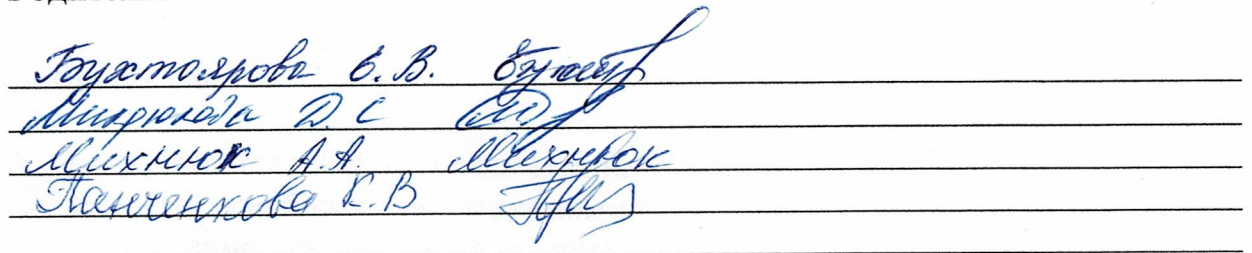 Бухтоярова Е. В.
Микрюкова Д. С
Михнюк А.А. Михнюк
Панченкова К. В